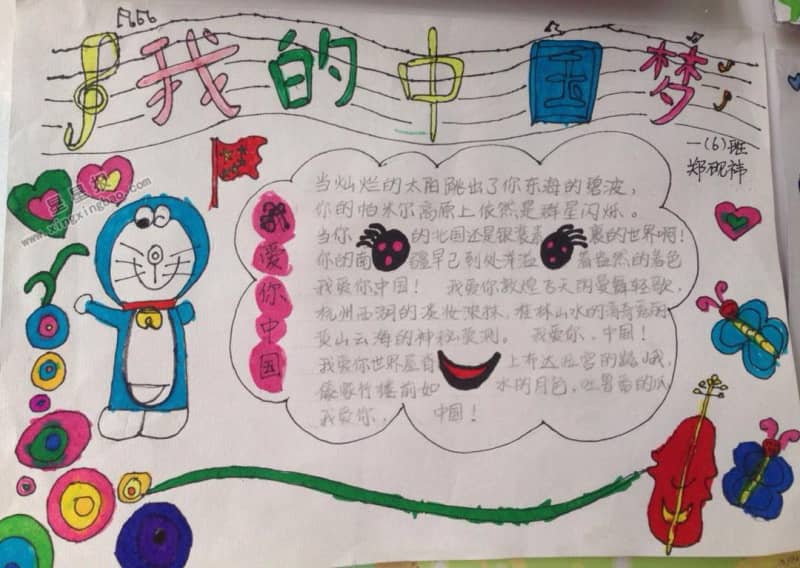 我的中国梦
一(6)班
郑砚祎
星星报
www.xingxingbao.com
我爱你中国
当灿烂的太阳跳出了你东海的碧波,
你的帕米尔高原上依然是群星闪烁。
当你的北国还是银装素裹的世界啊!
你的南疆早已到处洋溢着盎然的春色
我爱你中国! 我爱你敦煌飞天的曼舞轻歌,
杭州西湖的淡妆浓抹,桂林山水的清奇秀丽
黄山云海的神秘莫测。 我爱你,中国!
我爱你世界屋脊上布达拉宫的巍峨,
傣家竹楼前如水的月色,吐鲁番的瓜
我爱你, 中国!